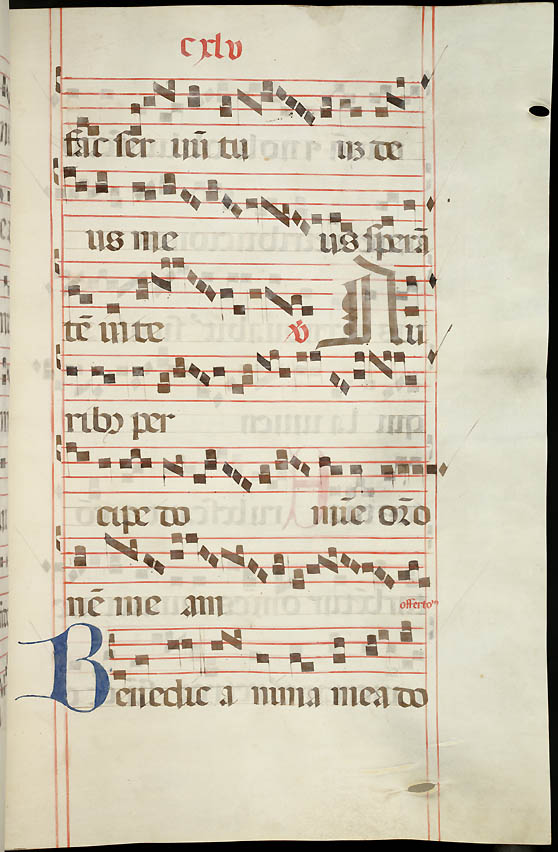 cxlv
fac ser uū tu uz de
us me us sperā
tē in te ℣ Au
ribꝫ per
cipe do mīe orō
nē me am
offertoⁿ
Benedic a nima mea do